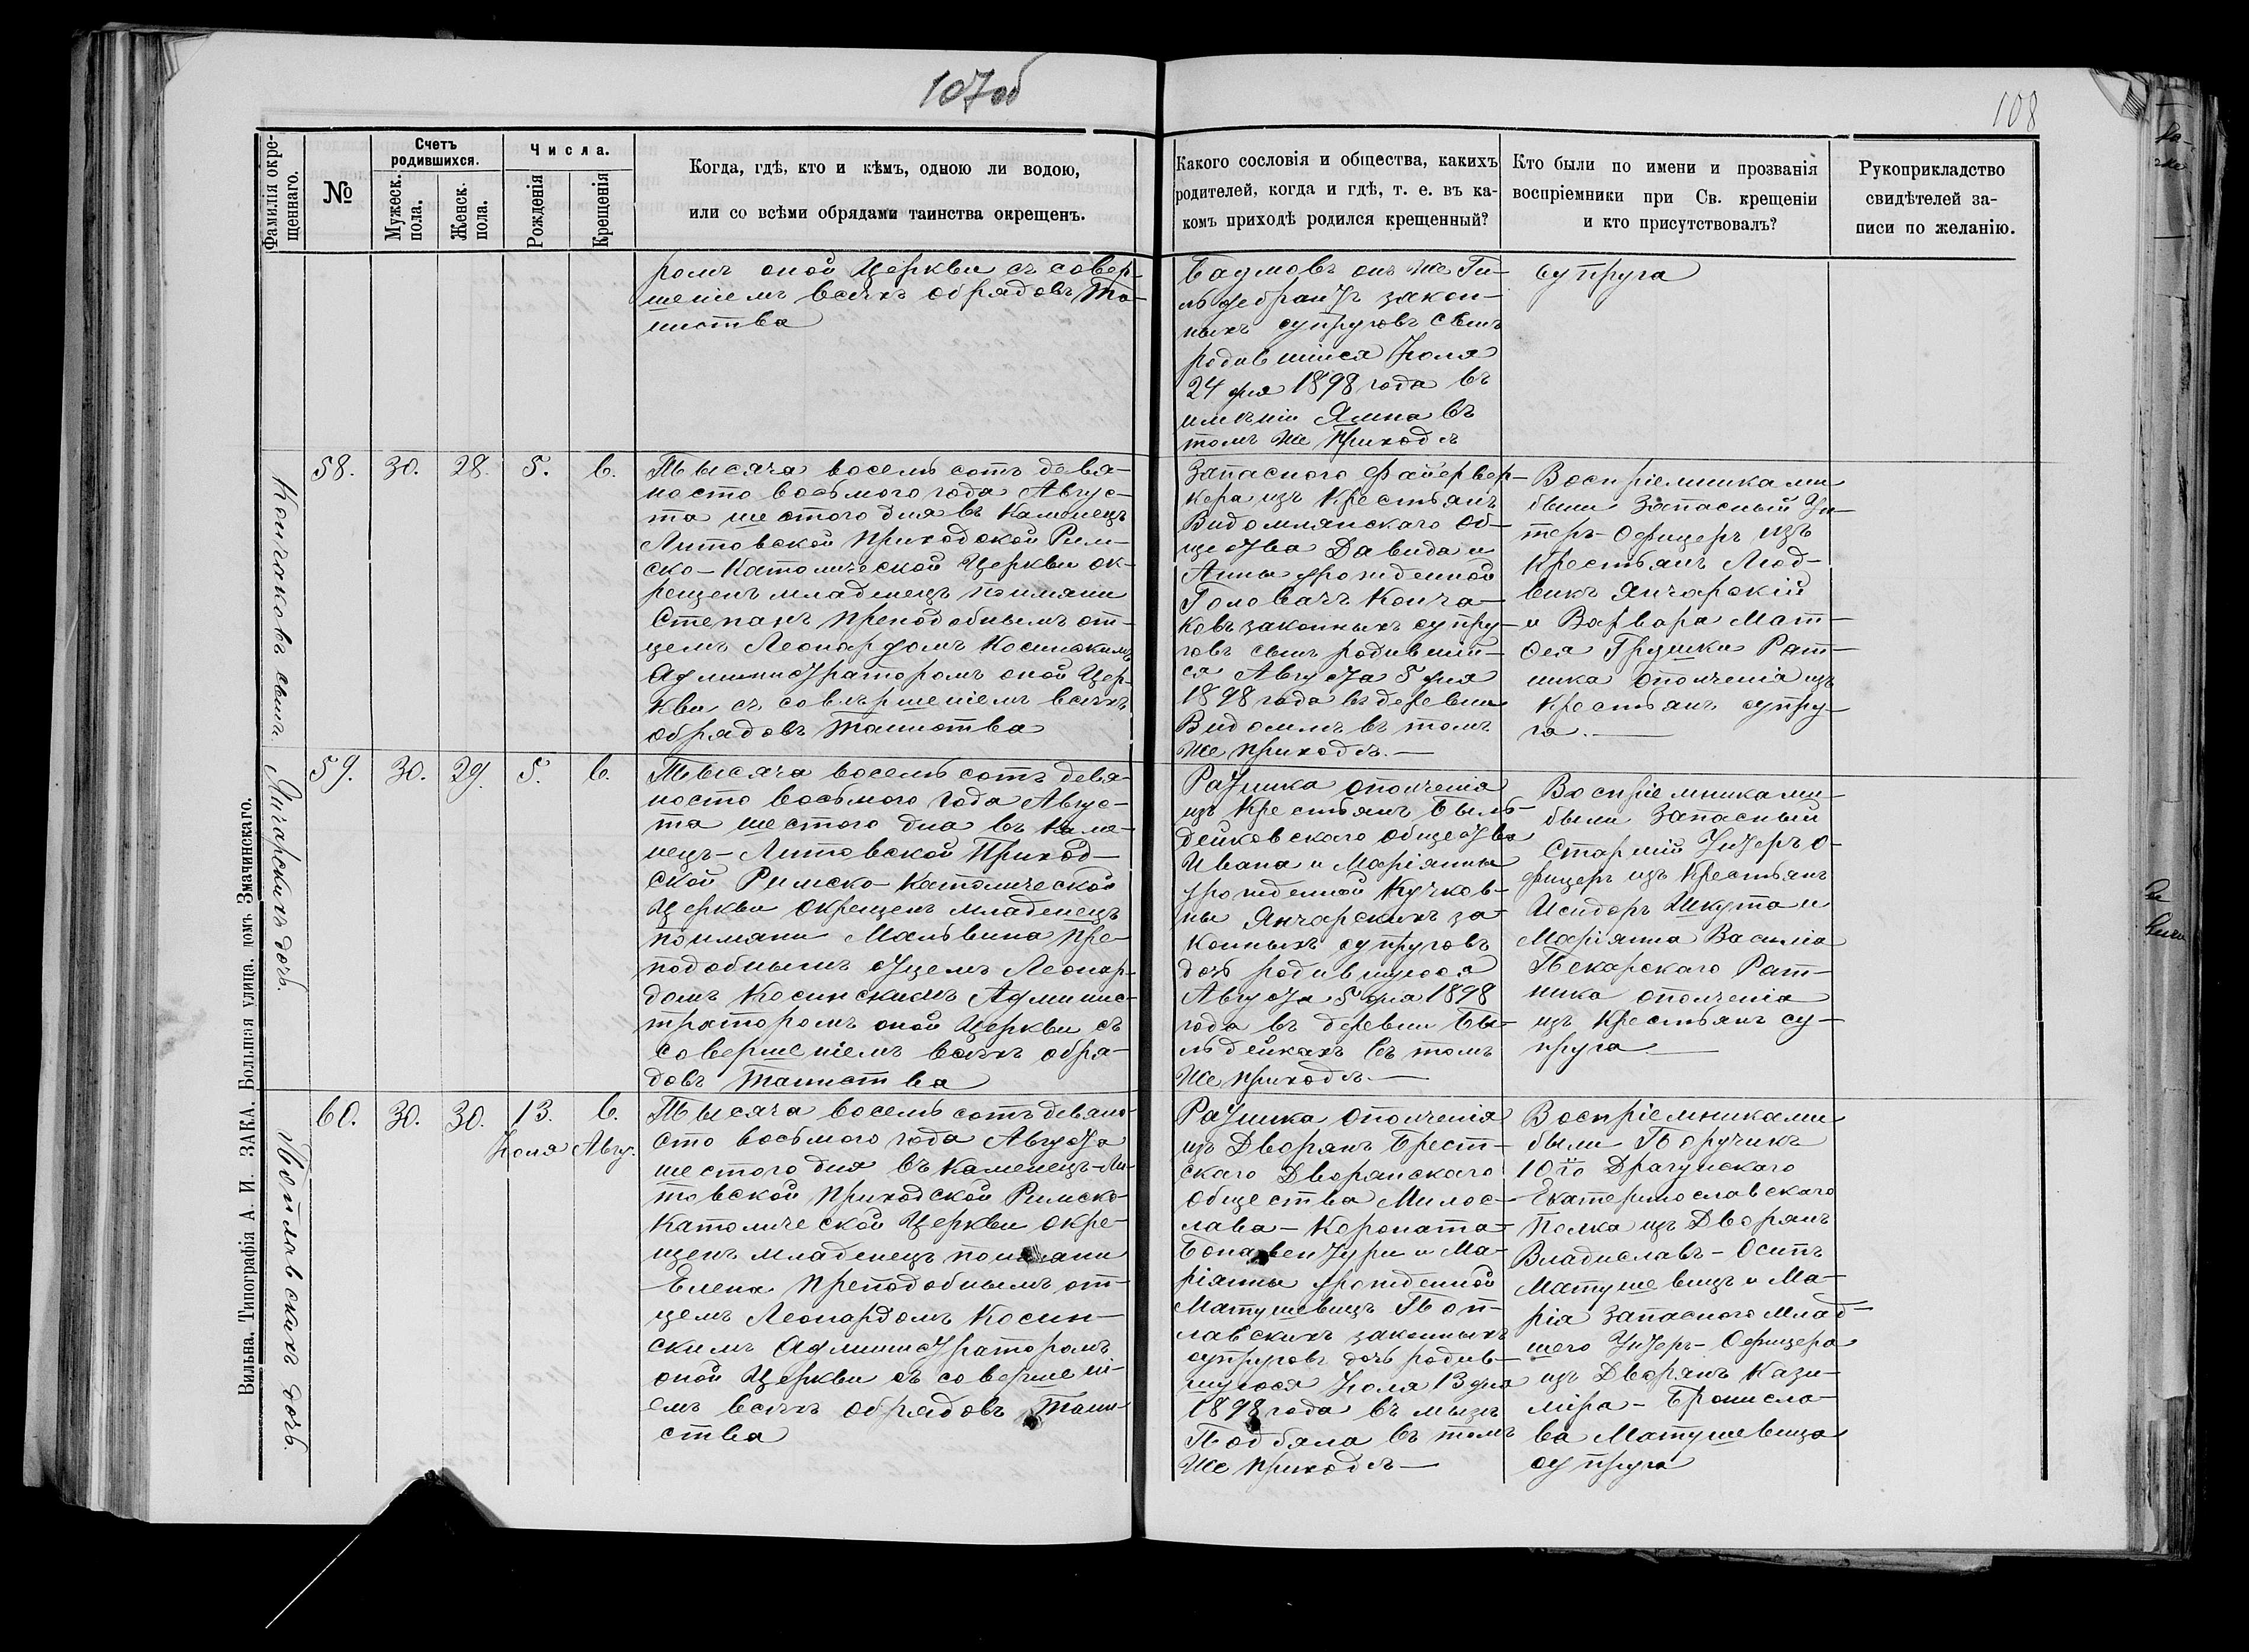 107об
108
Фамилія окре-
щеннаго.
№
Счетъ
родившихся.
Мужеск.
пола.
Женск.
пола.
Числа.
Рожденія
Крещенія
Когда, гдѣ, кто и кѣмъ, одною ли водою,
или со всѣми обрядами таинства окрещенъ.
Какого сословія и общества, какихъ
родителей, когда и гдѣ, т. е. въ ка-
комъ приходѣ родился крещенный?
Кто были по имени и прозванія
воспріемники при Св. крещеніи
и кто присутствовалъ?
Рукоприкладство
свидѣтелей за-
писи по желанію.
ромъ оной Церкви съ совер-
шеніемъ всѣхъ обрядовъ Та-
инства
законныхъ супруговъ сынъ
родившійся Іюля
24 дня 1898 года въ
имѣніи Ямна въ
томъ же приходѣ
супруга
Кончаковъ сынъ.
58. 30. 28. 5. 6.
Тысяча восемь сотъ девя-
носто восьмого года Авгус-
та шестого дня въ Каменецъ
Литовской приходской Рим-
ско-Католической Церкви ок-
рещенъ младенецъ поимяни
Степанъ преподобнымъ от-
цемъ Леонардомъ Косинскимъ
Администраторомъ оной Цер-
кви съ совершеніемъ всѣхъ
обрядовъ Таинства
Запасного файервер-
кера изъ крестьянъ
Видомлянскаго об-
щества Давида и
Анны урожденной
Головачъ Конча-
ковъ законныхъ супру-
говъ сынъ родившій-
ся Августа 5 дня
1898 года въ деревни
Видомлѣ въ томъ
же приходѣ.—
Воспріемниками
были Запасный Ун-
теръ-Офицеръ изъ
крестьянъ Люд-
викъ Янчарскій
и Варвара Мат-
фея Грушки Рат-
ника ополченія изъ
крестьянъ супру-
га.—
Янчарскихъ дочь.
59. 30. 29. 5. 6.
Тысяча восемь сотъ девя-
носто восьмого года Авгус-
та шестого дня въ Каме-
нецъ-Литовской Приход-
ской Римско-Католической
Церкви окрещенъ младенецъ
поимяни Мальвина пре-
подобнымъ отцемъ Леонар-
домъ Косинскимъ Админис-
траторомъ оной Церкви съ
совершеніемъ всѣхъ обря-
довъ Таинства
Ратника ополченія
изъ крестьянъ Быль-
дейковскаго общества
Ивана и Маріянны
урожденной Кучков-
ны Янчарскихъ за-
конныхъ супруговъ
дочь родившуюся
Августа 5 дня 1898
года въ деревни Бы-
льдейкахъ въ томъ
же приходѣ.—
Воспріемниками
были Запасный
Старшій Унтеръ О-
фицеръ изъ крестьянъ
Исидоръ Шкута и
Маріянна Василія
Пекарскаго Рат-
ника ополченія
изъ крестьянъ су-
пруга.—
Поплавскихъ дочь.
60. 30. 30. 13. 6.
Іюля Авгу.
Тысяча восемь сотъ девяно-
сто восьмого года Августа
шестого дня въ Каменецъ-Ли-
товской приходской Римско-
Католической Церкви окре-
щенъ младенецъ поимяни
Елена преподобнымъ от-
цемъ Леонардомъ Косин-
скимъ Администраторомъ
оной Церкви съ совершені-
емъ всѣхъ обрядовъ Таин-
ства
Ратника ополченія
изъ Дворянъ Брест-
скаго Дворянскаго
общества Милос-
лава-
Бонавентуры и Ма-
ріянны урожденной
Матушевицъ Поп-
лавскихъ законныхъ
супруговъ дочь родив-
шуюся Іюля 13 дня
1898 года въ мызѣ
Подбяла въ томъ
же приходѣ—
Воспріемниками
были Поручикъ
10го Драгунскаго
Екатеринославскаго
Полка изъ Дворянъ
Владиславъ-Осипъ
Матушевицъ и Ма-
рія Запасного Млад-
шего Унтеръ-Офицера
изъ Дворянъ Кази-
міра-Бронисла-
ва Матушевица
супруга
Вильна. Типографія А. И. ЗАКА. Большая улица. домъ Змачинскаго.